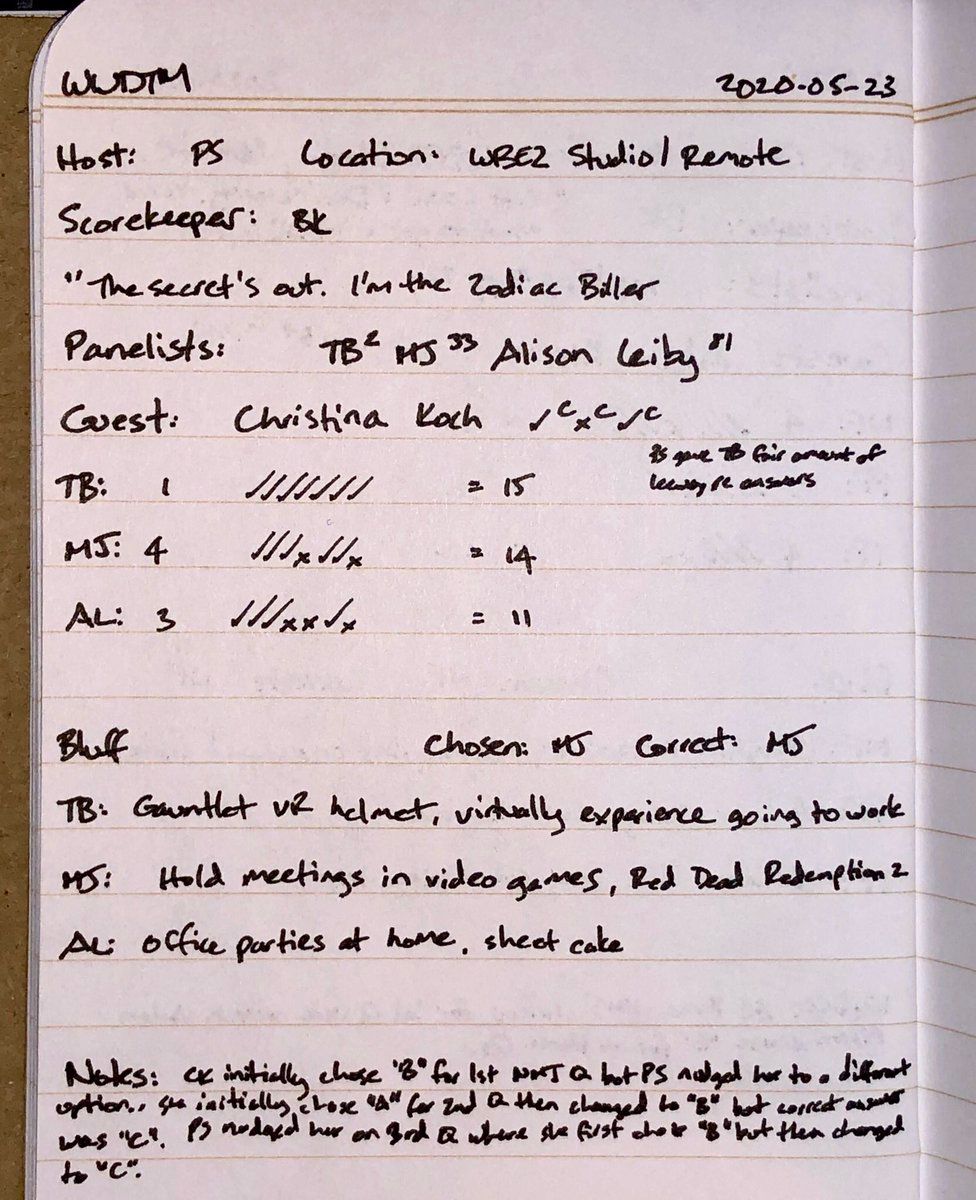 WWDTM 2020-05-23
Host: PS Location: WBEZ Studio/Remote
Scorekeeper: BK
"The secret's out. I'm the Zodiac Biller
Panelists: TB² MJ³³ Alison Leiby⁸¹
Guest: Christina Koch ✓ᶜ ×ᶜ ✓ᶜ
PS gave TB fair amount of
leeway re answers
TB: 1 ✓✓✓✓✓✓✓ = 15
MJ: 4 ✓✓✓×✓✓× = 14
AL: 3 ✓✓✓××✓× = 11
Bluff Chosen: MJ Correct: MJ
TB: Gauntlet VR helmet, virtually experience going to work
MJ: Hold meetings in video games, Red Dead Redemption 2
AL: Office parties at home, sheet cake
Notes: CK initially chose "B" for 1st NMJ Q but PS nudged her to a different
option. She initially chose "A" for 2nd Q then changed to "B" but correct answer
was "C". PS nudged her on 3rd Q where she first chose "B" but then changed
to "C".